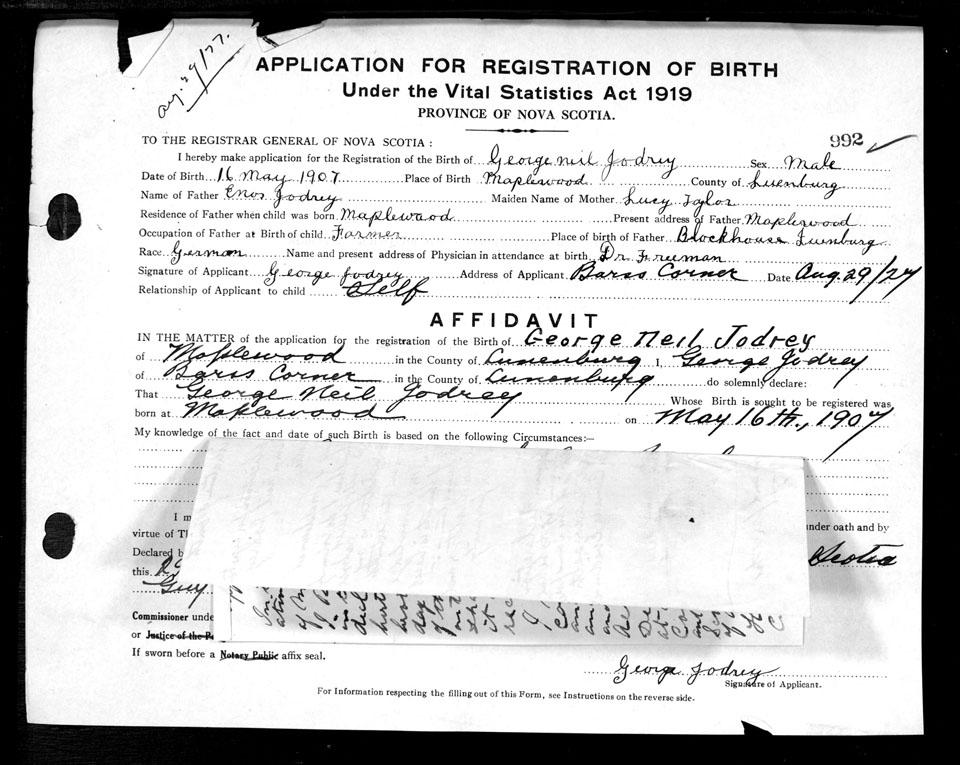 Aug. 29/27.
APPLICATION FOR REGISTRATION OF BIRTH
Under the Vital Statistics Act 1919
PROVINCE OF NOVA SCOTIA.
992
TO THE REGISTRAR GENERAL OF NOVA SCOTIA :
I hereby make application for the Registration of the Birth of George Neil Jodrey Sex Male
Date of Birth 16 May 1907 Place of Birth Maplewood County of Lunenburg
Name of Father Enos Jodrey Maiden Name of Mother Lucy Taylor
Residence of Father when child was born Maplewood Present address of Father Maplewood
Occupation of Father at Birth of child Farmer Place of birth of Father Blockhouse Lunenburg
Race German Name and present address of Physician in attendance at birth Dr. Freeman
Signature of Applicant George Jodrey Address of Applicant Barss Corner Date Aug. 29/27
Relationship of Applicant to child Self
AFFIDAVIT
IN THE MATTER of the application for the registration of the Birth of George Neil Jodrey
of Maplewood in the County of Lunenburg I, George Jodrey
of Barss Corner in the County of Lunenburg do solemnly declare:
That George Neil Jodrey Whose Birth is sought to be registered was
born at Maplewood on May 16th., 1907
My knowledge of the fact and date of such Birth is based on the following Circumstances:—
I m
under oath and by
virtue of Th
Declared b Scotia
this
Guy
Commissioner unde
or Justice of the Pe
If sworn before a Notary Public affix seal.
George Jodrey
Signature of Applicant.
For Information respecting the filling out of this Form, see Instructions on the reverse side.